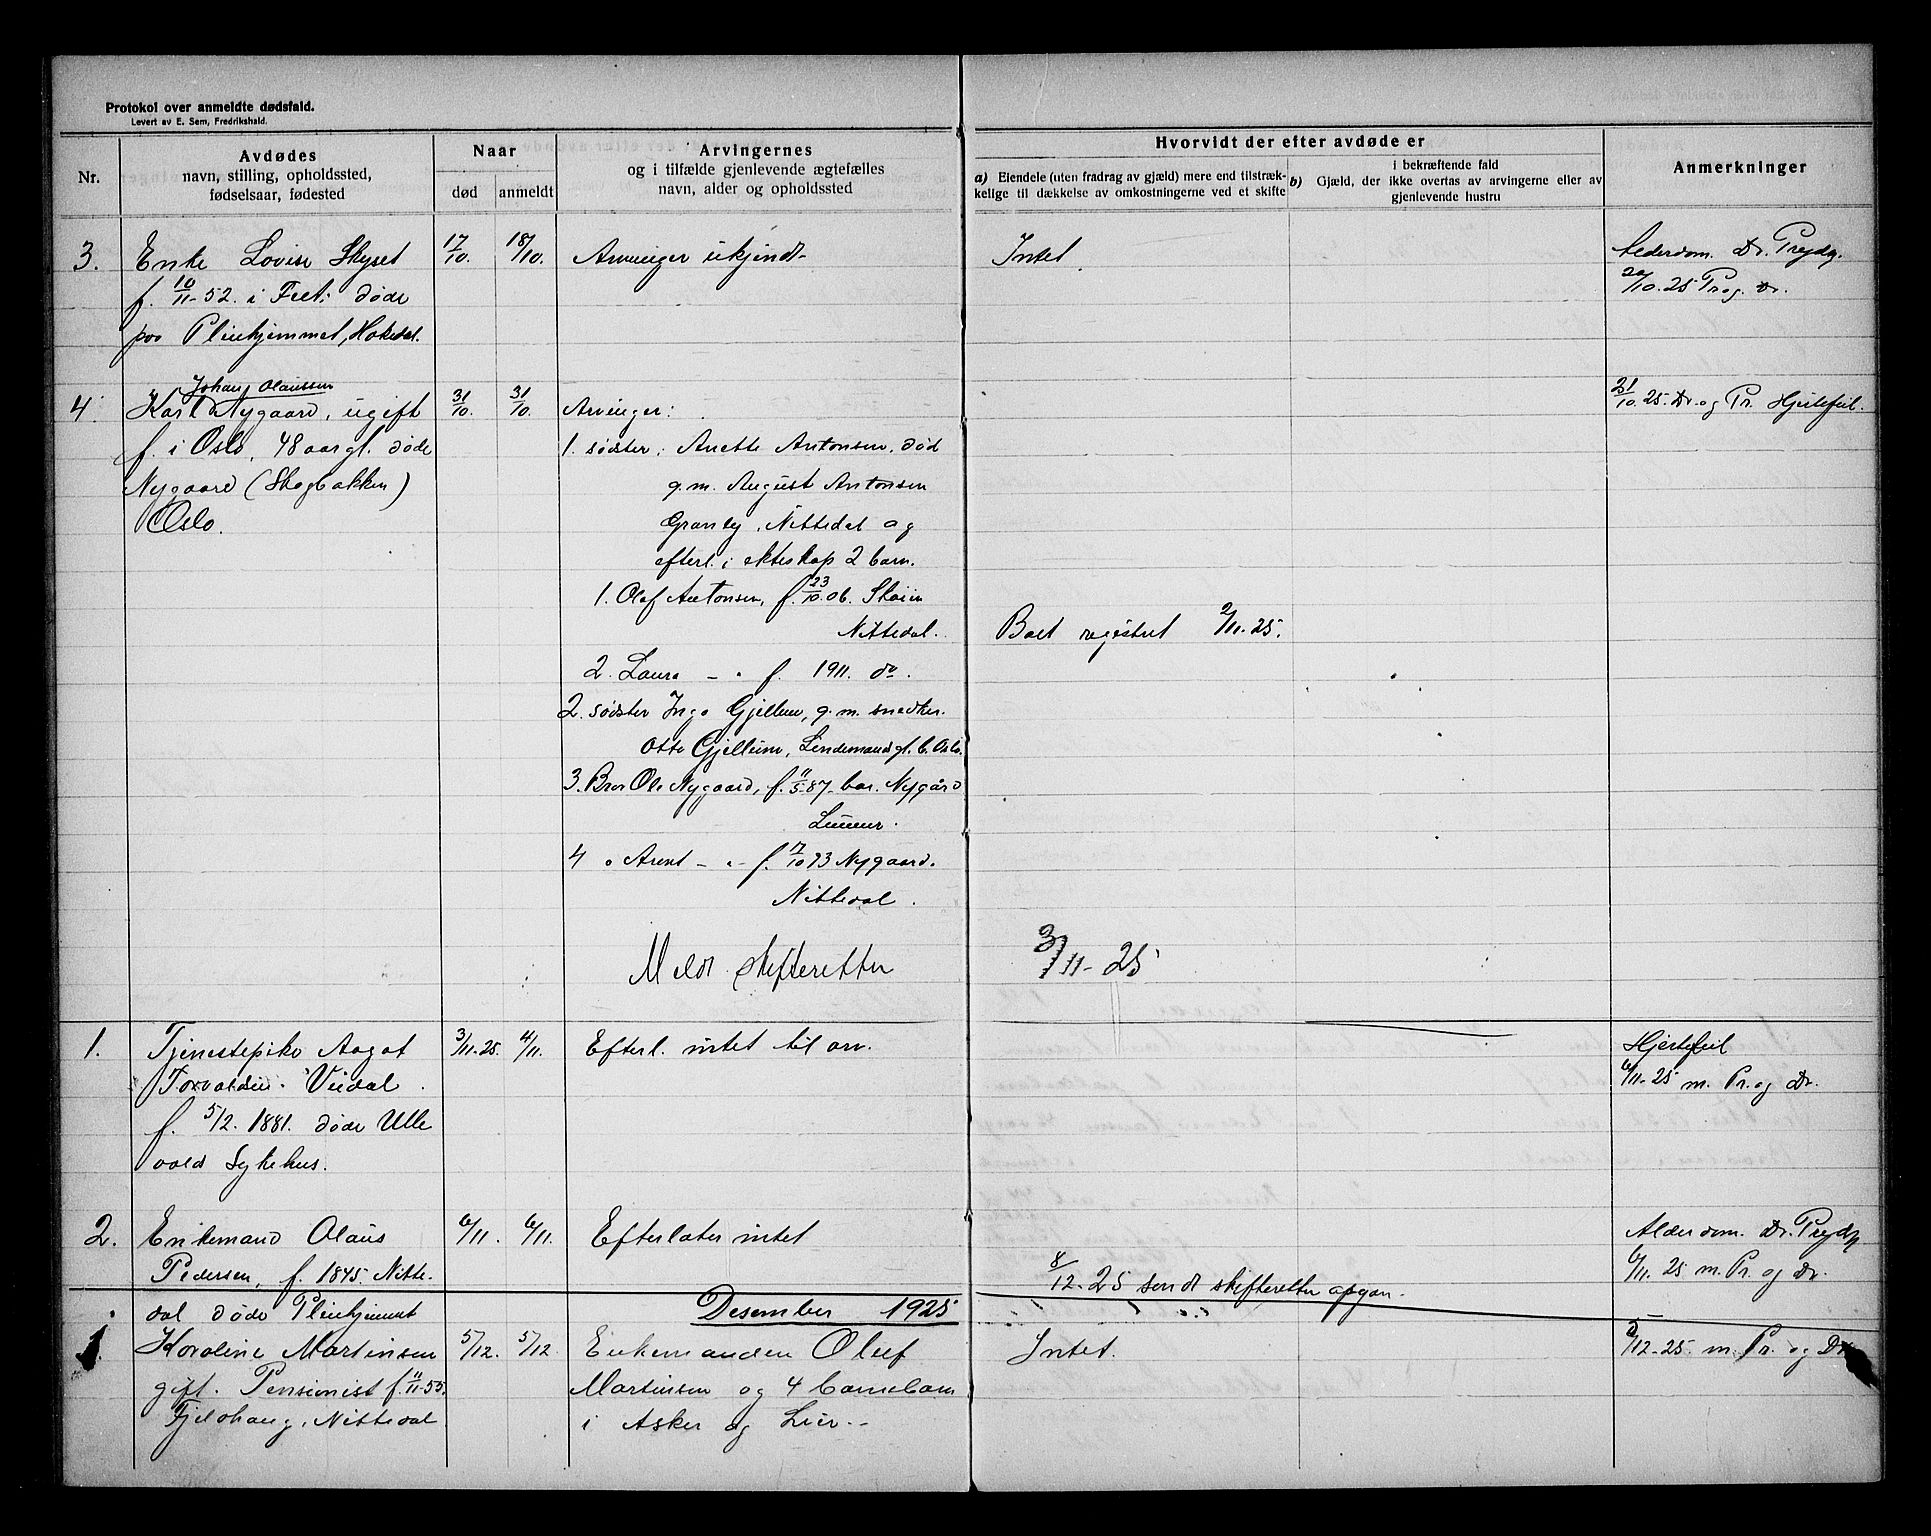 Protokol over anmeldte dødsfald.
Levert av E. Sem, Fredrikshald.
Nr.
Avdødes
navn, stilling, opholdssted,
fødselsaar, fødested
Naar
død
anmeldt
Arvingernes
og i tilfælde gjenlevende ægtefælles
navn, alder og opholdssted
Hvorvidt der efter avdøde er
a) Eiendele (uten fradrag av gjæld) mere end tilstræk-
kelige til dækkelse av omkostningerne ved et skifte
i bekræftende fald
b) Gjæld, der ikke overtas av arvingerne eller av
gjenlevende hustru
Anmerkninger
3.
Enke Lovise
f. 10/11-52. i Fet: døde
paa Pleiehjemmet, Hakedal.
17/10.
18/10.
Arvinger ukjendt
Intet
Alderdom. Dr.
20/10.25 Pr og Dr.
4
Johan Olaussen
Karl Nygaard, ugift
f. i Oslo, 48 aar gl. døde
Nygaard (Skogbakken)
Oslo.
31/10.
31/10.
Arvinger:
1. søster: Anette Antonsen, død
g.m. August Antonsen
Granly, Nittedal og
efterl. i ekteskap 2 barn.
1. Olaf Antonsen, f. 23/10.06.
Nittedal.
2. Laura - " f. 1911. do.
2. søster Inga Gjellum, g.m. snedker.
Otto Gjellum, Lindemansgt. 6. Oslo.
3. Bror Ole Nygaard, f. 11/5-87. Nygård
4 " Arent - " - f. 17/10 93 Nygaard.
Nittedal.
Boet registret 2/11.25.
31/10.25. Dr. og Pr. Hjertefeil.
Meldt skifteretten
3/11-25
1.
Tjenestepike Aagot
f. 5/2. 1881. døde Ulle
vold Sykehus.
3/11.25.
4/11.
Efterl. intet til arv.
Hjertefeil
6/11-25 m. Pr. og Dr.
2.
Enkemand Olaus
Pedersen, f. 1845. Nitte-
dal døde Pleiehjemmet
6/11.
6/11.
Efterlater intet
8/12-25 sendt skifteretten opgav.
Alderdom. Dr.
6/11. 25 m. Pr. og Dr.
Desember 1925
1.
Karoline Martinsen
gift. Pensionist f. 11/11-55.
Nittedal
5/12.
5/12
Enkemanden Oluf
Martinsen og 4 barnebarn
i Asker og Lier.
Intet.
5/12-25 m. Pr. og Dr.